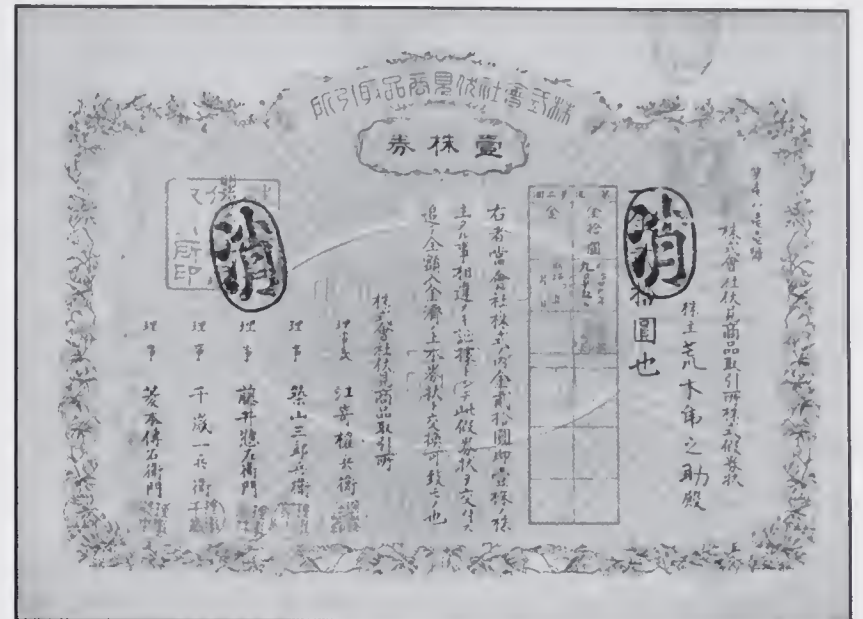 株式會社伏見商品取引所
壹株券
株式會社伏見商品取引所株式假券状
株主荒木
之助殿
消
拾圓也
金拾圓
金
右者當會社株式ノ内金貳拾圓即壹株ノ株
主タル事相違ナキ証據トシテ此假券状ヲ交付ス
追テ全額入金濟ノ上本券状ト交換可致モノ也
株式會社伏見商品取引所
理事長
江崎權兵衛
理事
築山三郎兵衛
理事
藤井惣左衛門
理事
千歳一兵衛
理事
菱本傳右衛門
消
所印